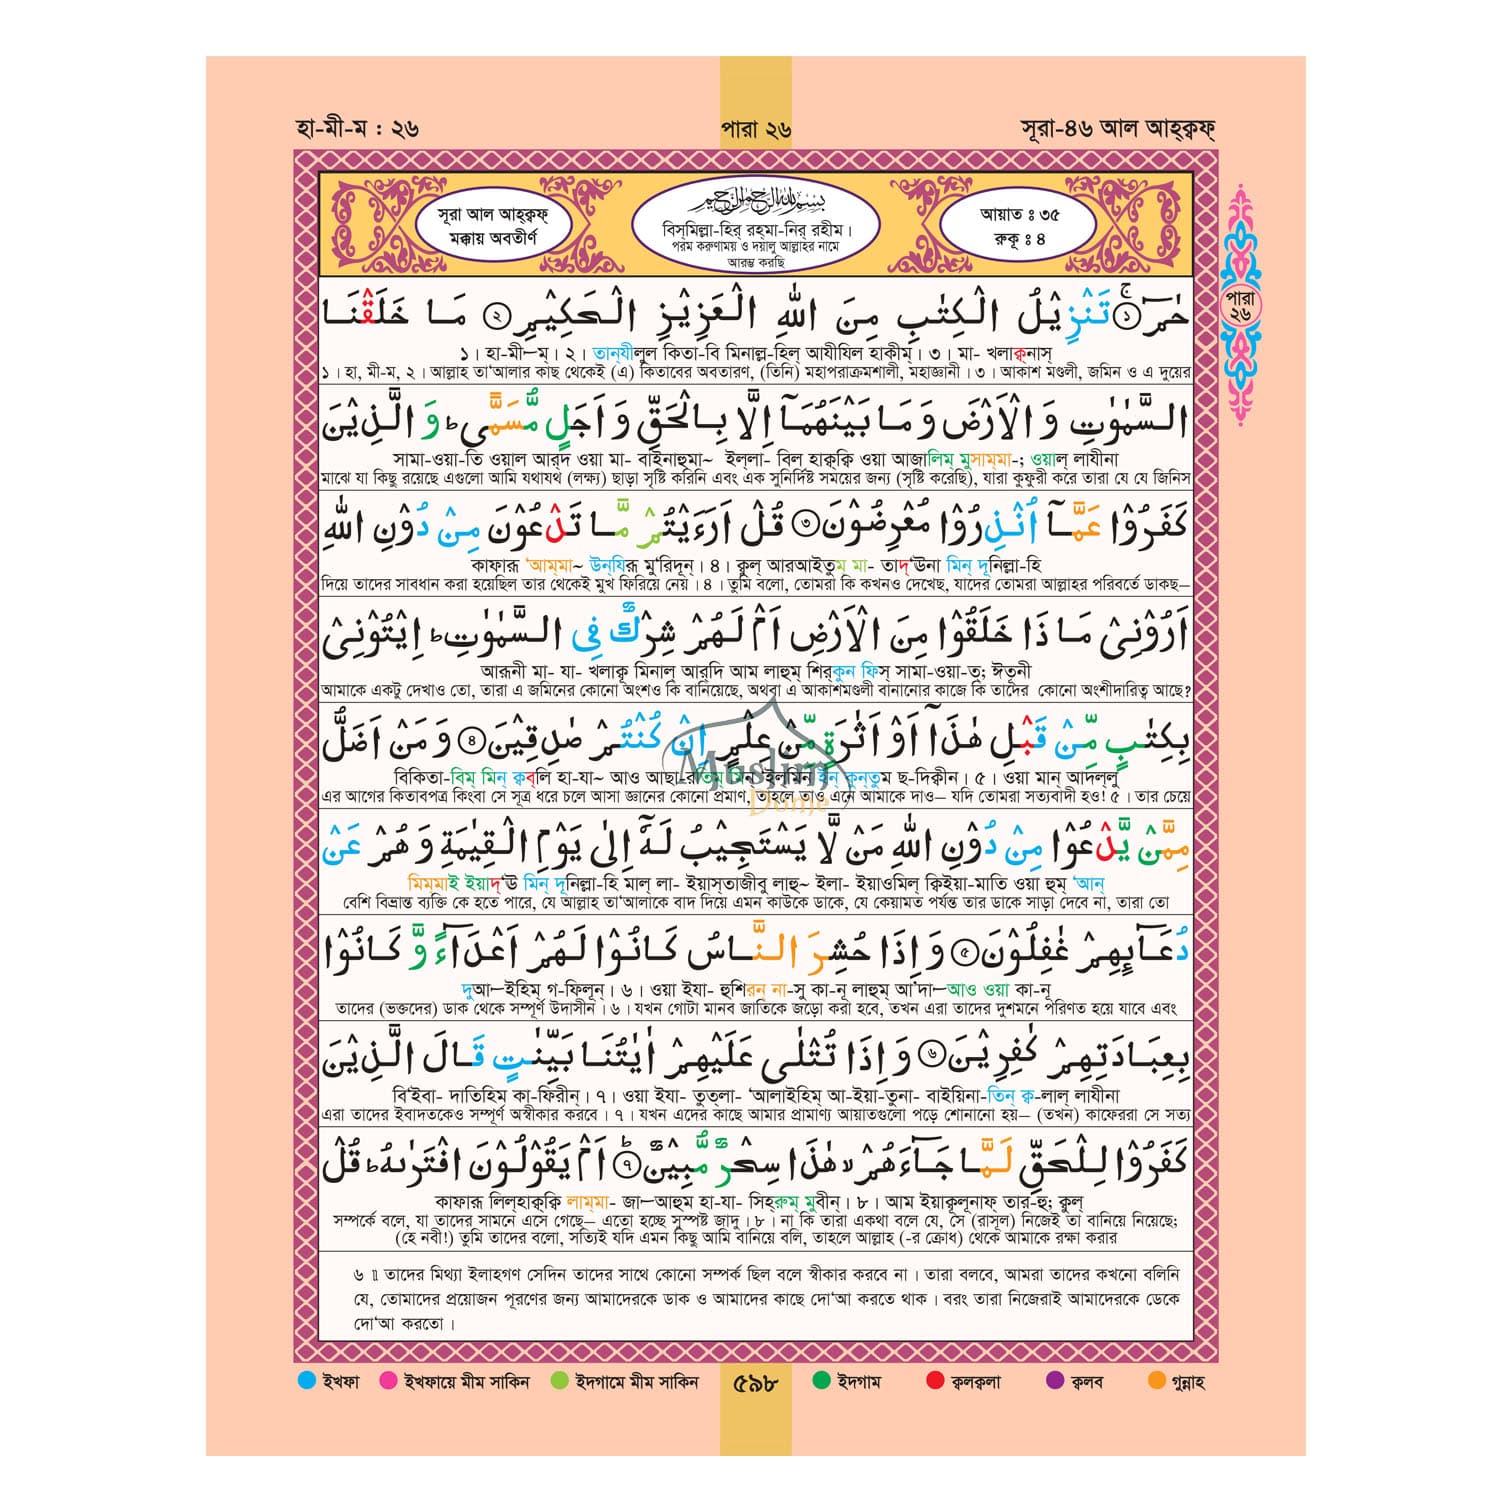 হা-মী-ম : ২৬
পারা ২৬
সূরা-৪৬ আল আহ্ক্বফ্
সূরা আল আহ্ক্বফ্
মক্কায় অবতীর্ণ
بسم الله الرحمن الرحيم
বিস্‌মিল্লা-হির্ রহ্‌মা-নির্ রহীম।
পরম করুণাময় ও দয়ালু আল্লাহর নামে
আরম্ভ করছি
আয়াত ঃ ৩৫
রুকূ ঃ ৪
পারা
২৬
حٰمٓ ۚ﴿১﴾ تَنْزِيْلُ الْكِتٰبِ مِنَ اللهِ الْعَزِيْزِ الْحَكِيْمِ ﴿২﴾ مَا خَلَقْنَا
১। হা-মী—ম্। ২। তান্‌যীলুল কিতা-বি মিনাল্ল-হিল্ আযীযিল হাকীম্। ৩। মা- খলাক্ব্‌নাস্
১। হা, মী-ম, ২। আল্লাহ তা'আলার কাছ থেকেই (এ) কিতাবের অবতারণ, (তিনি) মহাপরাক্রমশালী, মহাজ্ঞানী। ৩। আকাশ মণ্ডলী, জমিন ও এ দুয়ের
السَّمٰوٰتِ وَ الْاَرْضَ وَ مَا بَيْنَهُمَآ اِلَّا بِالْحَقِّ وَ اَجَلٍ مُّسَمًّى ؕ وَ الَّذِيْنَ
সামা-ওয়া-তি ওয়াল আর্‌দ ওয়া মা- বাইনাহুমা~ ইল্‌লা- বিল হাক্ব্‌ক্বি ওয়া আজালিম্ মুসাম্‌মা-; ওয়াল্ লাযীনা
মাঝে যা কিছু রয়েছে এগুলো আমি যথাযথ (লক্ষ্য) ছাড়া সৃষ্টি করিনি এবং এক সুনির্দিষ্ট সময়ের জন্য (সৃষ্টি করেছি), যারা কুফুরী করে তারা যে যে জিনিস
كَفَرُوْا عَمَّآ اُنْذِرُوْا مُعْرِضُوْنَ ﴿৩﴾ قُلْ اَرَءَيْتُمْ مَّا تَدْعُوْنَ مِنْ دُوْنِ اللهِ
কাফারূ 'আম্‌মা~ উন্‌যিরূ মু'রিদূন্। ৪। কুল্ আরআইতুম মা- তাদ্'ঊনা মিন্ দূনিল্লা-হি
দিয়ে তাদের সাবধান করা হয়েছিল তার থেকেই মুখ ফিরিয়ে নেয়। ৪। তুমি বলো, তোমরা কি কখনও দেখেছ, যাদের তোমরা আল্লাহর পরিবর্তে ডাকছ—
اَرُوْنِيْ مَا ذَا خَلَقُوْا مِنَ الْاَرْضِ اَمْ لَهُمْ شِرْكٌ فِي السَّمٰوٰتِ ؕ اِيْتُوْنِيْ
আরূনী মা- যা- খলাক্বূ মিনাল্ আর্‌দি আম লাহুম্ শির্‌কুন ফিস্ সামা-ওয়া-ত; ঈতূনী
আমাকে একটু দেখাও তো, তারা এ জমিনের কোনো অংশও কি বানিয়েছে, অথবা এ আকাশমণ্ডলী বানানোর কাজে কি তাদের কোনো অংশীদারিত্ব আছে?
بِكِتٰبٍ مِّنْ قَبْلِ هٰذَآ اَوْ اَثٰرَةٍ مِّنْ عِلْمٍ اِنْ كُنْتُمْ صٰدِقِيْنَ ﴿৪﴾ وَ مَنْ اَضَلُّ
বিকিতা-বিম্ মিন্ ক্বব্‌লি হা-যা~ আও আছা-রতিম্ মিন্ 'ইল্‌মিন্ ইন্ কুন্‌তুম ছ-দিক্বীন। ৫। ওয়া মান্ আদল্‌লু
এর আগের কিতাবপত্র কিংবা সে সূত্র ধরে চলে আসা জ্ঞানের কোনো প্রমাণ, তাহলে তাও এনে আমাকে দাও— যদি তোমরা সত্যবাদী হও! ৫। তার চেয়ে
Muslim
Dome
مِمَّنْ يَّدْعُوْا مِنْ دُوْنِ اللهِ مَنْ لَّا يَسْتَجِيْبُ لَهٗٓ اِلٰى يَوْمِ الْقِيٰمَةِ وَ هُمْ عَنْ
মিমমাই ইয়াদ্'ঊ মিন্ দূনিল্লা-হি মাল্ লা- ইয়াস্‌তাজীবু লাহূ~ ইলা- ইয়াওমিল্ ক্বিইয়া-মাতি ওয়া হুম্ 'আন্
বেশি বিভ্রান্ত ব্যক্তি কে হতে পারে, যে আল্লাহ তা'আলাকে বাদ দিয়ে এমন কাউকে ডাকে, যে কেয়ামত পর্যন্ত তার ডাকে সাড়া দেবে না, তারা তো
دُعَآىِٕهِمْ غٰفِلُوْنَ ﴿৫﴾ وَ اِذَا حُشِرَ النَّاسُ كَانُوْا لَهُمْ اَعْدَآءً وَّ كَانُوْا
দুআ—ইহিম্ গ-ফিলূন্। ৬। ওয়া ইযা- হুশিরন্ না-সু কা-নূ লাহুম্ আ'দা—আও ওয়া কা-নূ
তাদের (ভক্তদের) ডাক থেকে সম্পূর্ণ উদাসীন। ৬। যখন গোটা মানব জাতিকে জড়ো করা হবে, তখন এরা তাদের দুশমনে পরিণত হয়ে যাবে এবং
بِعِبَادَتِهِمْ كٰفِرِيْنَ ﴿৬﴾ وَ اِذَا تُتْلٰى عَلَيْهِمْ اٰيٰتُنَا بَيِّنٰتٍ قَالَ الَّذِيْنَ
বি'ইবা- দাতিহিম্ কা-ফিরীন্। ৭। ওয়া ইযা- তুত্‌লা- 'আলাইহিম্ আ-ইয়া-তুনা- বাইয়িনা-তিন্ ক্ব-লাল্ লাযীনা
এরা তাদের ইবাদতকেও সম্পূর্ণ অস্বীকার করবে। ৭। যখন এদের কাছে আমার প্রামাণ্য আয়াতগুলো পড়ে শোনানো হয়— (তখন) কাফেররা সে সত্য
كَفَرُوْا لِلْحَقِّ لَمَّا جَآءَهُمْ ۙ هٰذَا سِحْرٌ مُّبِيْنٌ ؕ﴿৭﴾ اَمْ يَقُوْلُوْنَ افْتَرٰىهُ ؕ قُلْ
কাফারূ লিল্‌হাক্ব্‌ক্বি লাম্‌মা- জা—আহুম হা-যা- সিহ্‌রুম্ মুবীন্। ৮। আম ইয়াকূলূনাফ্ তার-হু; ক্বুল্
সম্পর্কে বলে, যা তাদের সামনে এসে গেছে— এতো হচ্ছে সুস্পষ্ট জাদু। ৮। না কি তারা একথা বলে যে, সে (রাসূল) নিজেই তা বানিয়ে নিয়েছে;
(হে নবী!) তুমি তাদের বলো, সত্যিই যদি এমন কিছু আমি বানিয়ে বলি, তাহলে আল্লাহ (-র ক্রোধ) থেকে আমাকে রক্ষা করার
৬ ॥ তাদের মিথ্যা ইলাহগণ সেদিন তাদের সাথে কোনো সম্পর্ক ছিল বলে স্বীকার করবে না। তারা বলবে, আমরা তাদের কখনো বলিনি
যে, তোমাদের প্রয়োজন পূরণের জন্য আমাদেরকে ডাক ও আমাদের কাছে দো'আ করতে থাক। বরং তারা নিজেরাই আমাদেরকে ডেকে
দো'আ করতো।
ইখফা
ইখফায়ে মীম সাকিন
ইদগামে মীম সাকিন
৫৯৮
ইদগাম
ক্বলক্বলা
ক্বলব
গুন্নাহ